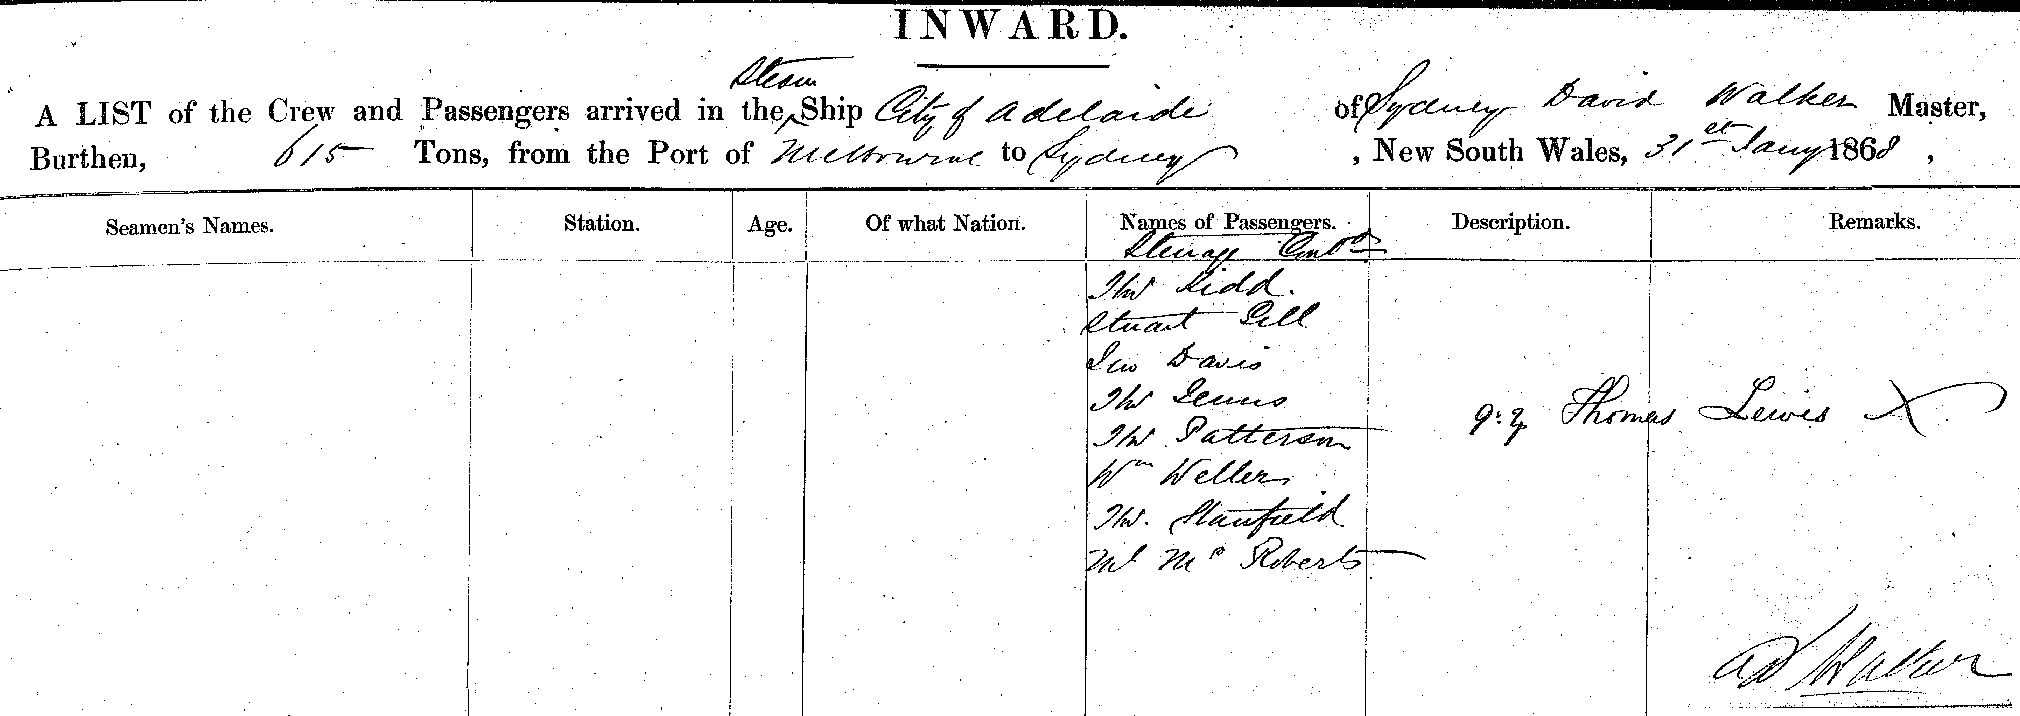 INWARD.
Steam
A LIST of the Crew and Passengers arrived in the Ship City of Adelaide of Sydney David Walker Master,
Burthen, 615 Tons, from the Port of Melbourne to Sydney, New South Wales, 31st Jany 1868,
Seamen's Names. Station. Age. Of what Nation. Names of Passengers. Description. Remarks.
Steerage Contd
Kidd.
Stuart Gill
Jno Davis
Patterson Thomas Lewis X
Wm Weller
Stanfield
Mc Roberts
Walker